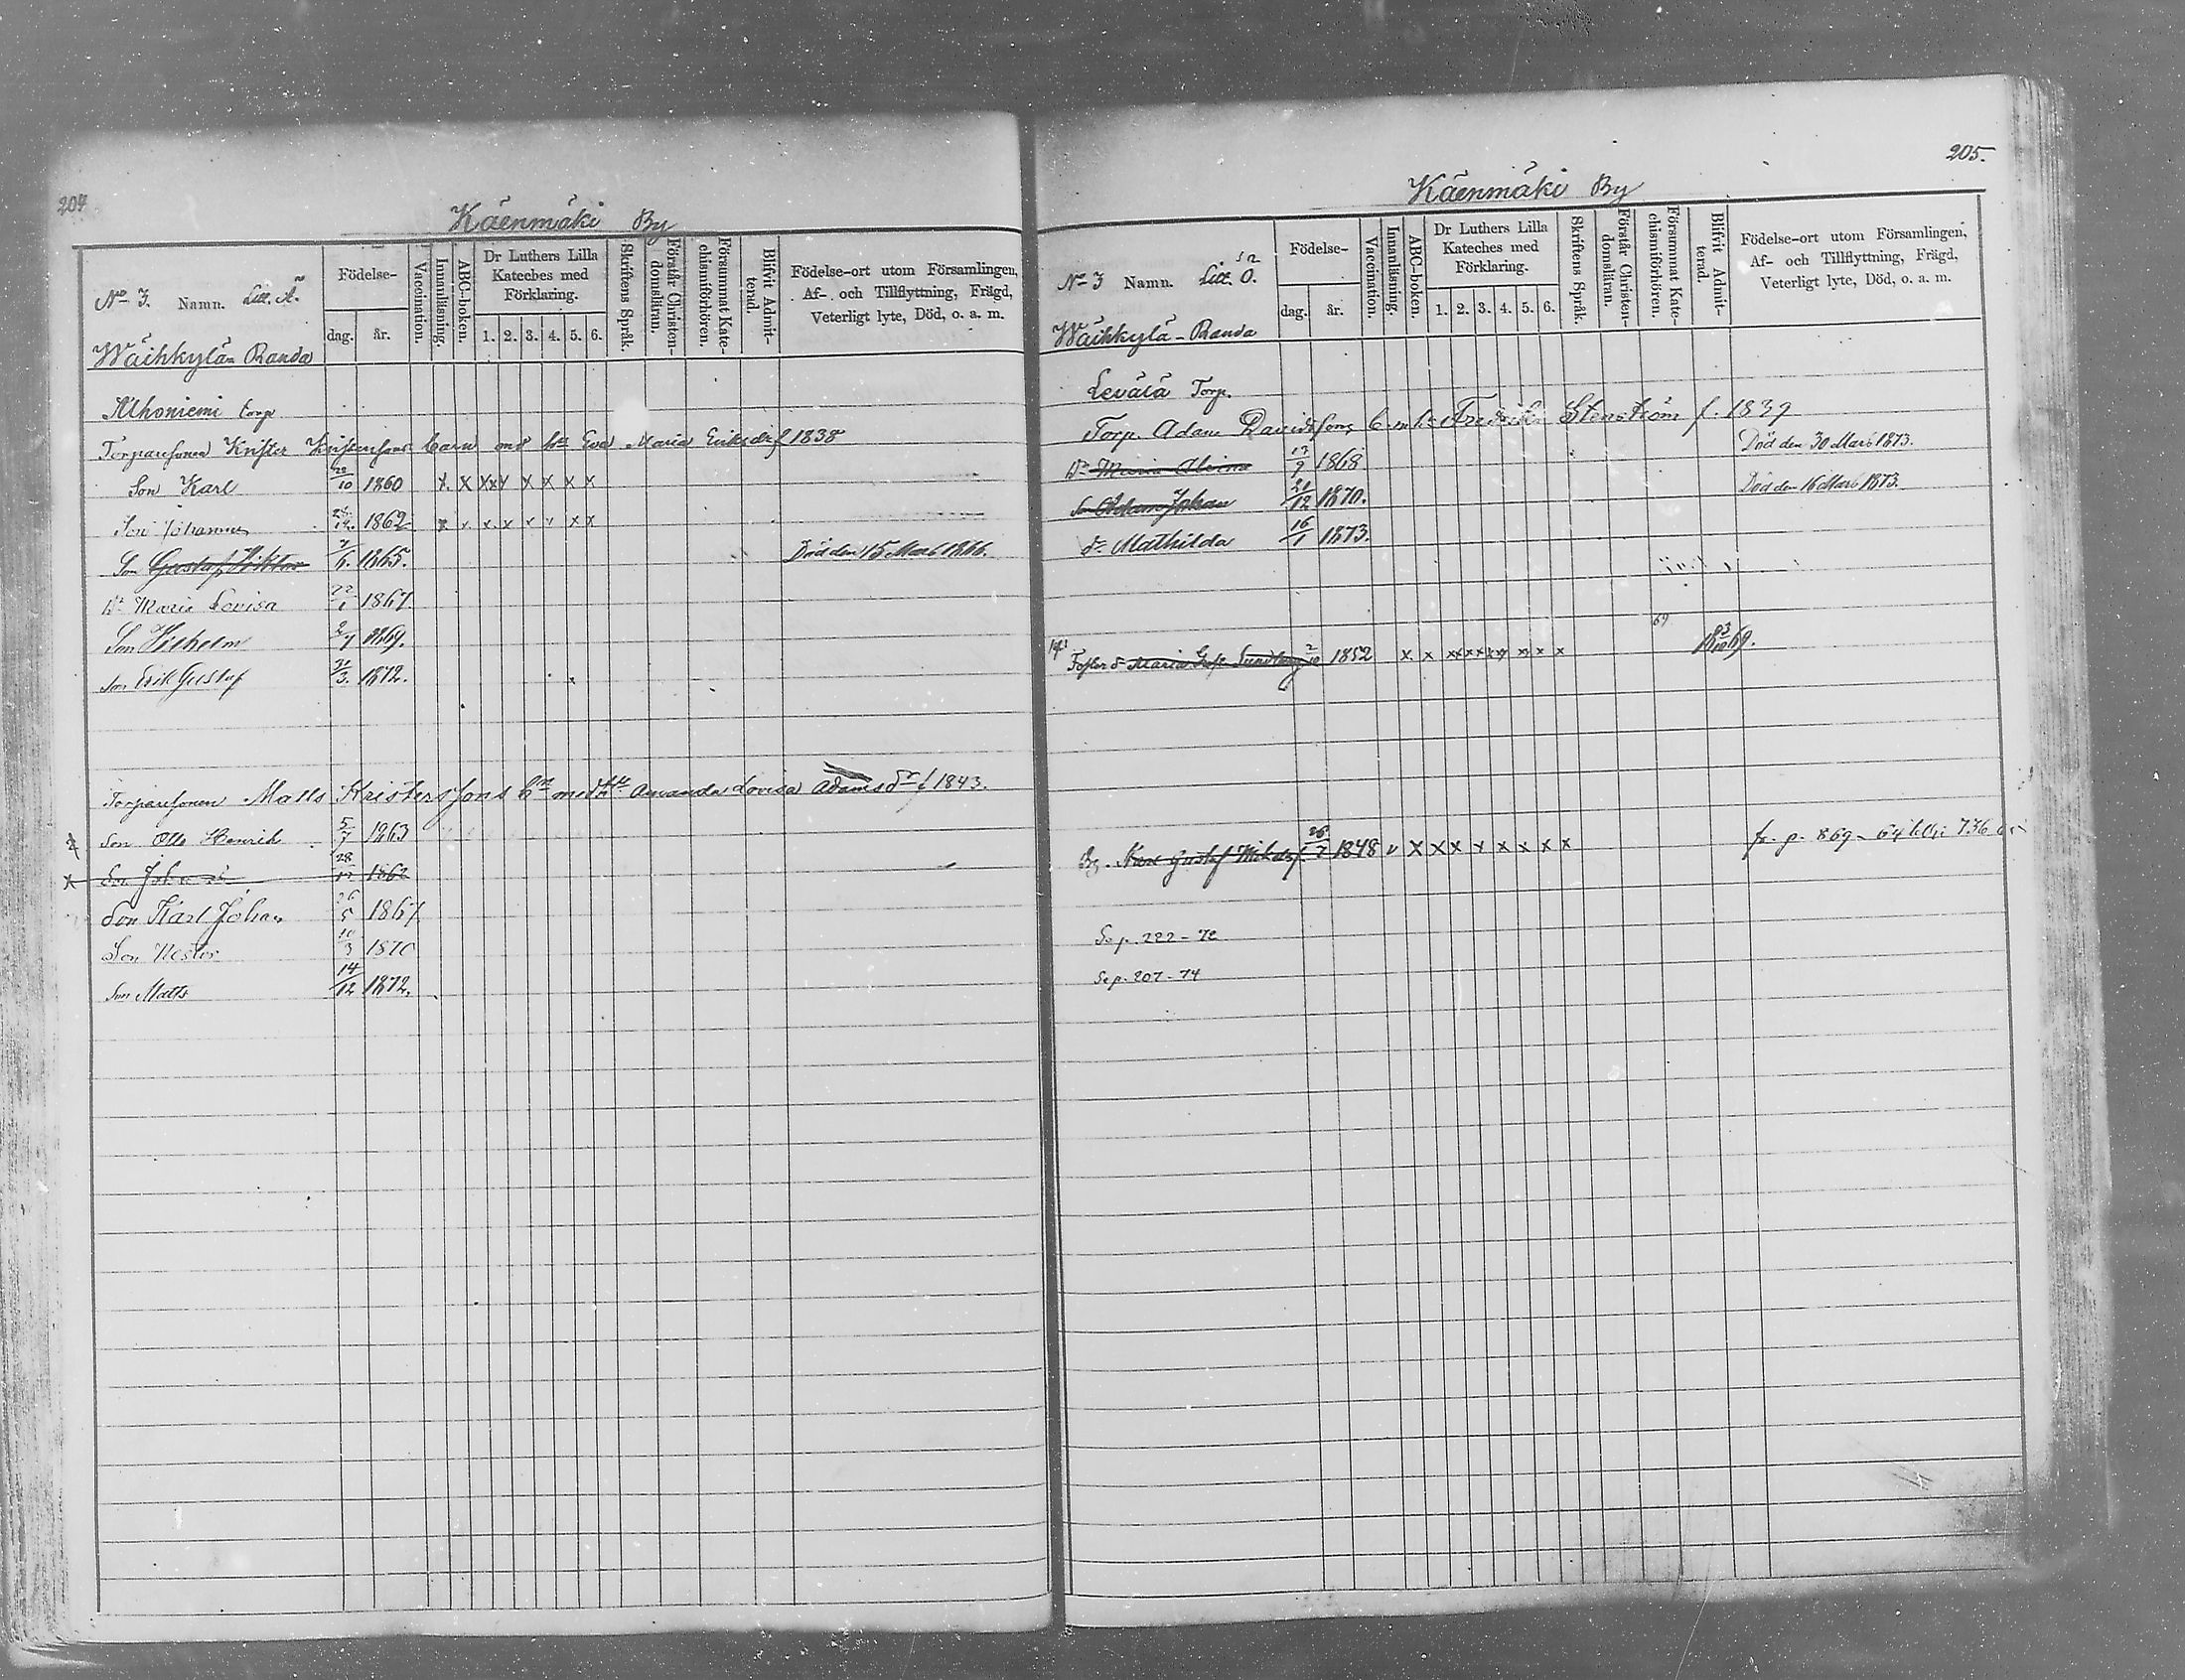 204
Käenmäki By
No 3. Namn. Litt. Ä.
Födelse-
dag. år.
Vaccination.
Innanläsning.
ABC-boken.
Dr Luthers Lilla Kateches med Förklaring.
1. 2. 3. 4. 5. 6.
Skriftens Språk.
Förstår Christen-domsläran.
Försummat Kate-chismiförhören.
Blifvit Admit-terad.
Födelse-ort utom Församlingen,
Af- och Tillflyttning, Frägd,
Veterligt lyte, Död, o. a. m.
Wäihkylä - Randa
Alhoniemi torp
Torparesonen Krister Kristerssons barn med hu Eva Maria Eriksdr f 1838
Son Karl 22/10 1860 x x x x x x x x x
Son Johannes 1862 x x x x x x x x
Son Gustaf Viktor 1865. Död den 15 Mars 1866.
Dr Maria Lovisa 22/1 1867.
Son Vilhelm 1869.
Son Erik Gustaf 31/3. 1872.
Torparesonen Matts Kristerssons bn med hu Amanda Lovisa Adamsdr f 1843.
Son Otto Henrik 5/7 1863
Son 28/12 1862
Son Karl Johan 26/5 1867
Son Nestor 10/3 1870
Son Matts 14/12 1872.
205.
Käenmäki By
No 3 Namn. Litt. Ö.
Födelse-
dag. år.
Vaccination.
Innanläsning.
ABC-boken.
Dr Luthers Lilla Kateches med Förklaring.
1. 2. 3. 4. 5. 6.
Skriftens Språk.
Förstår Christen-domsläran.
Försummat Kate-chismiförhören.
Blifvit Admit-terad.
Födelse-ort utom Församlingen,
Af- och Tillflyttning, Frägd,
Veterligt lyte, Död, o. a. m.
Wäihkylä - Randa
Levälä Torp.
Torp. Adam Davidssons b. m. hu Fredrika Stenström f. 1839
Dr Maria Alvina 17/9 1868 Död den 30 Mars 1873.
Son Adam Johan 21/12 1870. Död den 16 Mars 1873.
dr Mathilda 16/1 1873.
69
Foster d Maria Sundberg 1852 x x x x x x x x x
Karl Gustaf 1848 v x x x x x x x x fr. p. 869 - 64
Se p. 222 - 72
Se p. 207 - 74